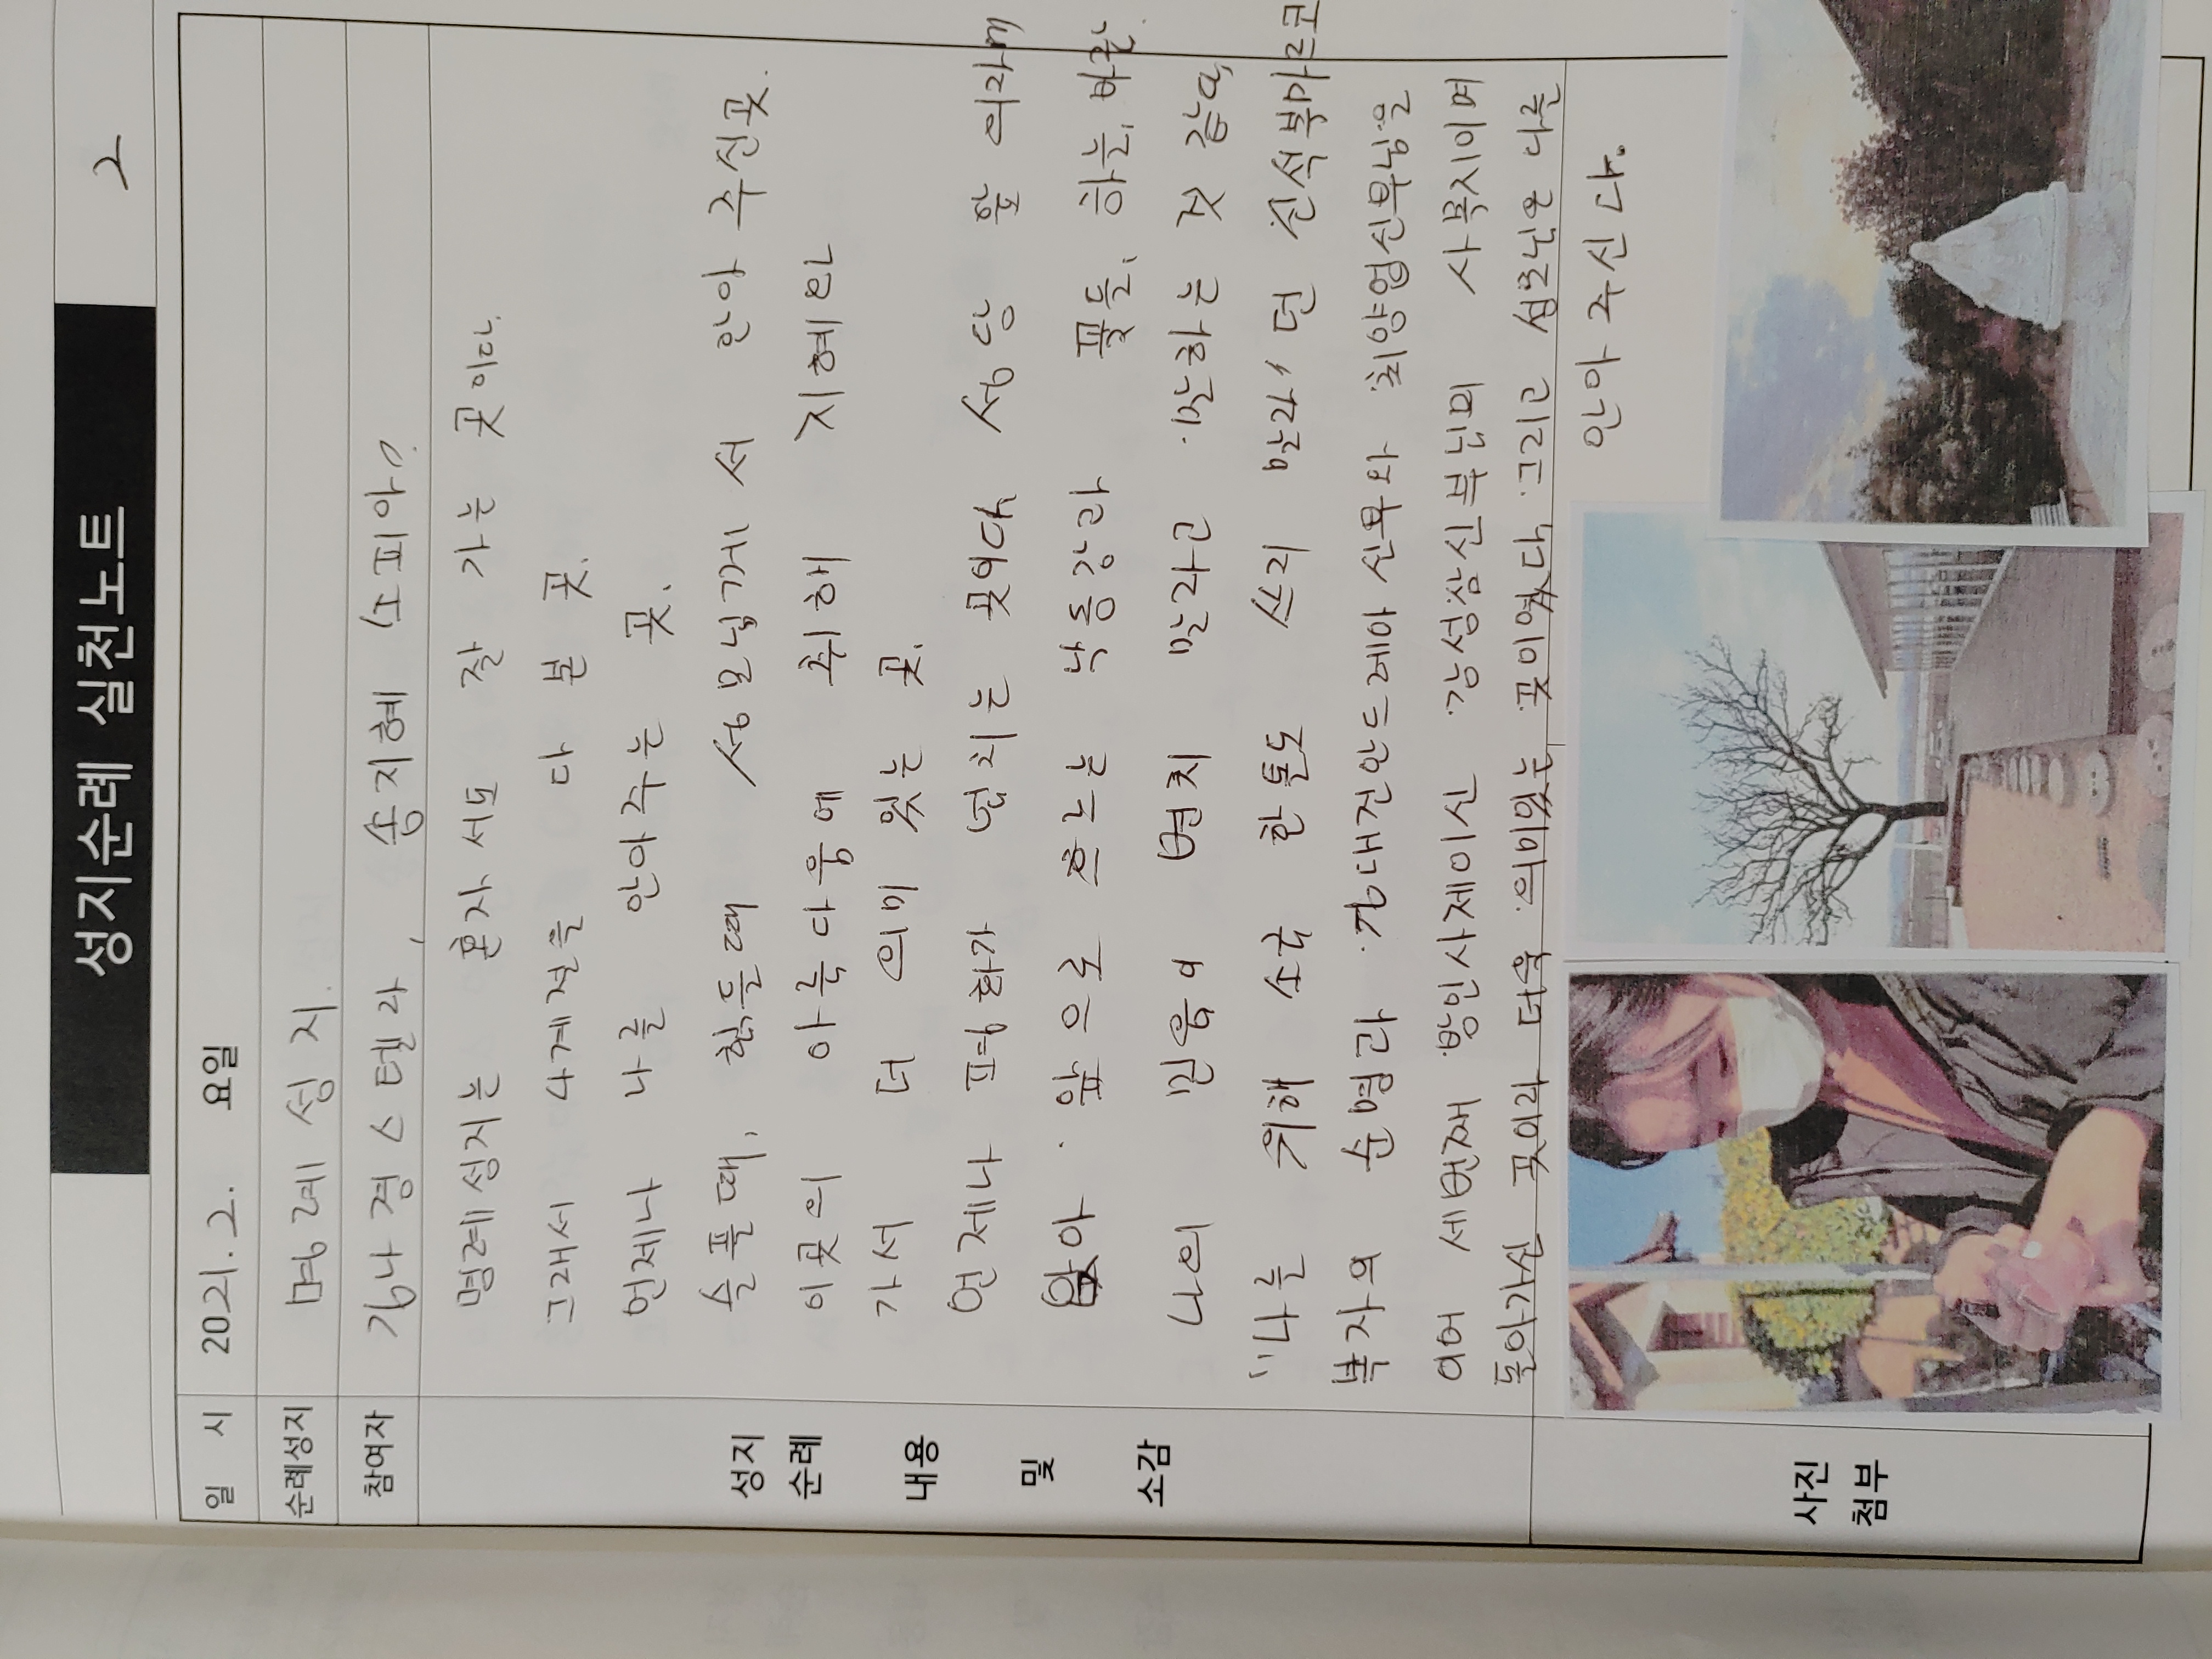 성지순례 실천노트 2
일 시 2021. 2. 요일
순례성지 명례성지.
참여자 김나경스텔라, 송지혜 소피아
명례성지는 혼자서도 잘 가는 곳이다.
그래서 4계절을 다 본 곳.
언제나 나를 안아주는 곳.
슬플때, 힘들때 성모님께서 안아 주신곳.
이곳의 아름다움에 취해 지혜와
가서 더 의미 있는 곳.
언제나 평화가 넘치는 곳이다. 성당 앞 의자에
앉아 앞으로 흐르는 낙동강과 꽃들, 하늘, 바람.
나의 믿음이 변치 말라고 말하는 것 같다.
"나를 위해 소금 한톨도 쓰지 말라"던 신석복마르코
복자의 순명과 김대건안드레아 신부와 최양업신부님을
이어 세번째 방인사제이신 강성삼신부님의 사목지이며
돌아가신 곳이라 더욱 의미있는 곳이였다. 그리고 성모님은 나를
안아 주신다.
성지
순례
내용
및
소감
사진
첨부